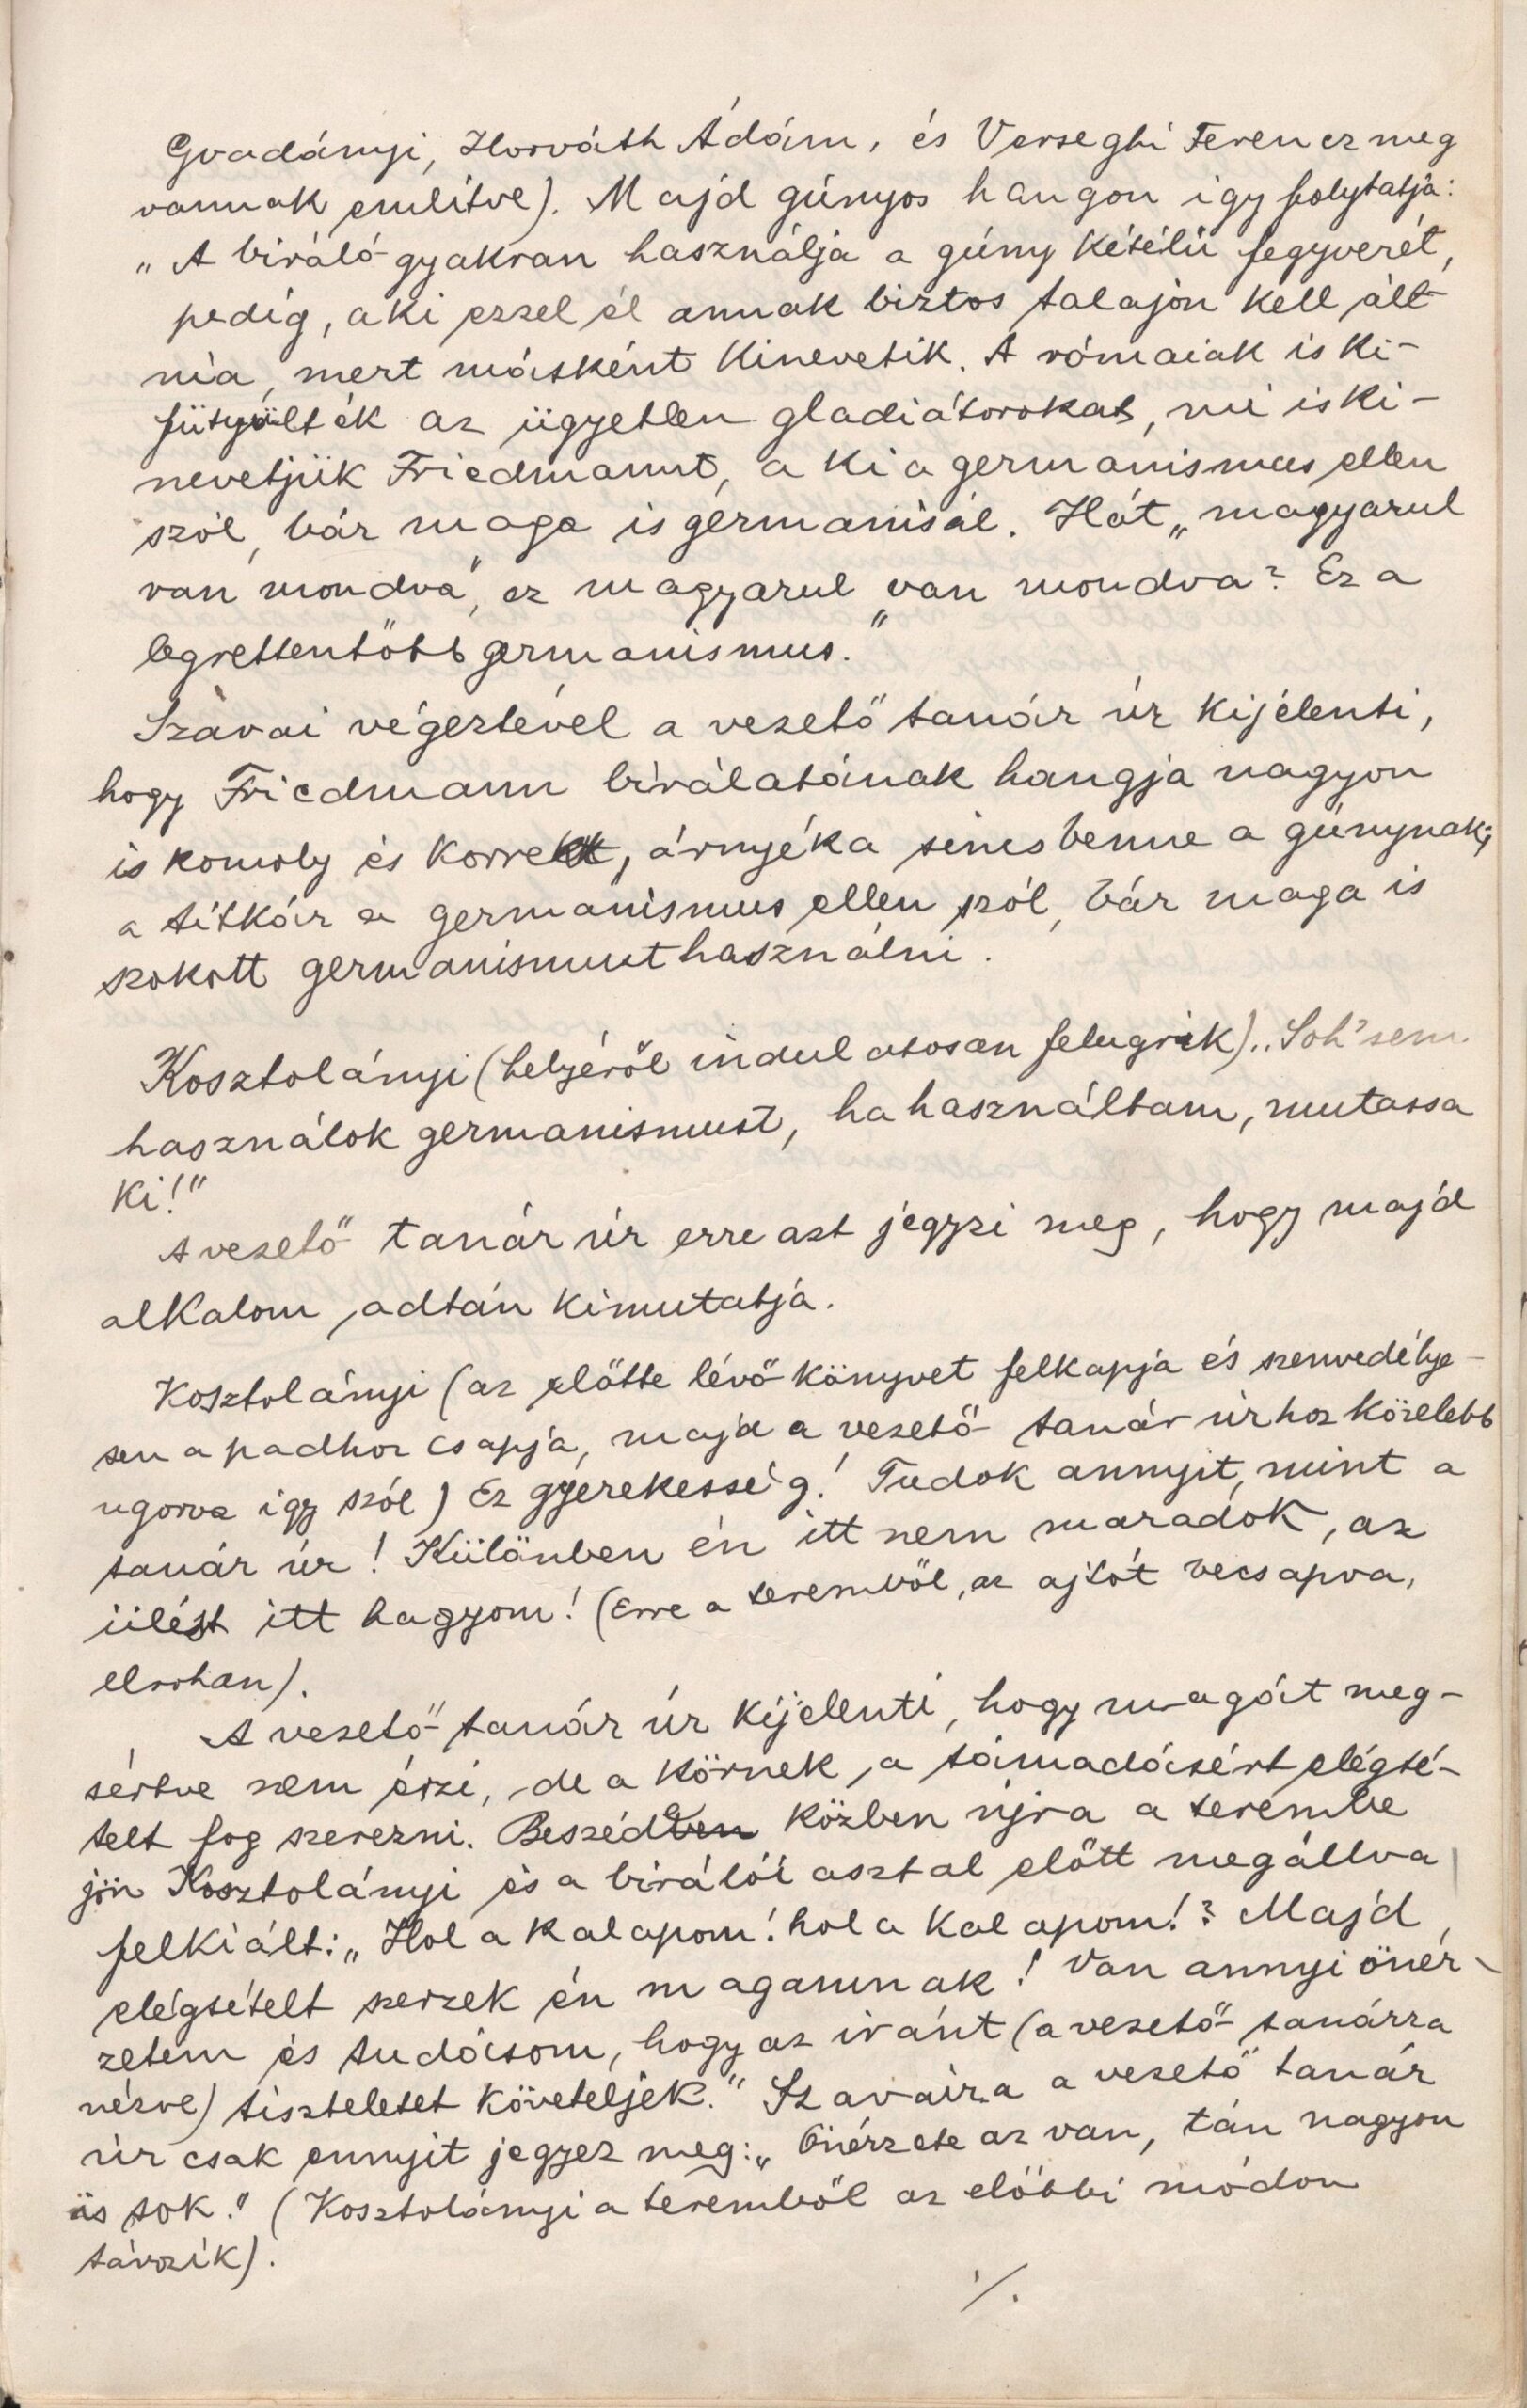 Gvadányi, Horváth Ádám, és Verseghi Ferencz meg
vannak emlitve). Majd gúnyos hangon igy folytatja:
„A biráló gyakran használja a gúny kétélü fegyverét,
pedig, aki ezzel él annak biztos talajon kell áll
nia, mert másként kinevetik. A rómaiak is ki-
fütyülték az ügyetlen gladiátorokat, mi is ki-
nevetjük Friedmannt, a ki a germanismus ellen
szól, bár maga is germanisál. Hát „magyarul
van mondva", ez magyarul van mondva? Ez a
legrettentőbb germanismus."
Szávai végeztével a vezető tanár úr kijelenti,
hogy Friedmann birálatának hangja nagyon
is komoly és korrekt, árnyéka sincs benne a gúnynak;
a titkár a germanismus ellen szól, bár maga is
szokott germanismust használni.
Kosztolányi (helyéről indulatosan felugrik) „Soh'sem
használok germanismust, ha használtam, mutassa
ki!"
A vezető tanár úr erre azt jegyzi meg, hogy majd
alkalom adtán kimutatja.
Kosztolányi (az előtte lévő könyvet felkapja és szenvedélye-
sen a padhoz csapja, majd a vezető tanár úrhoz közelebb
ugorva igy szól) Ez gyerekesség! Tudok annyit, mint a
tanár úr! Különben én itt nem maradok, az
ülést itt hagyom! (Erre a teremből, az ajtót becsapva,
elrohan).
A vezető tanár úr kijelenti, hogy magát meg-
sértve nem érzi, de a körnek, a támadásért elégté-
telt fog szerezni. Beszéde közben újra a terembe
jön Kosztolányi és a birálói asztal előtt megállva
felkiált: „Hol a kalapom! hol a kalapom!? Majd
elégtételt szerzek én magamnak! Van annyi önér-
zetem és tudásom, hogy az iránt (a vezető tanárra
nézve) tiszteletet követeljek." Szavaira a vezető tanár
úr csak ennyit jegyez meg: „Önérzete az van, tán nagyon
is sok." (Kosztolányi a teremből az előbbi módon
távozik).
./.